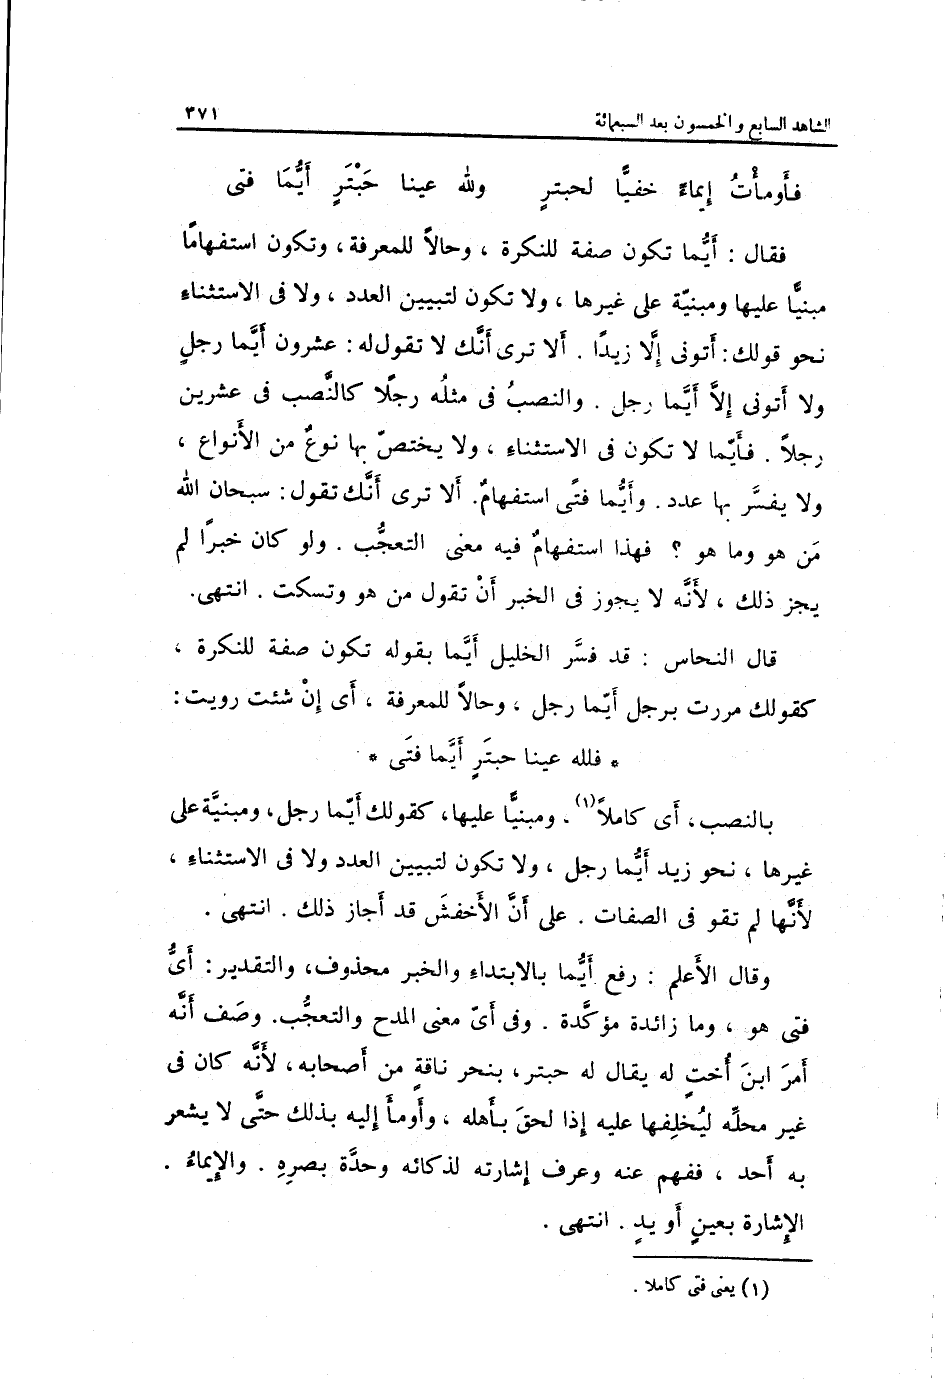 الشاهد السابع والخمسون بعد السبعمائة ٣٧١
فأَومأْتُ إيماءً خفيًّا لحبترٍ ولله عينا حَبْتَرٍ أَيُّمَا فتى
فقال : أَيُّما تكون صفة للنكرة ، وحالاً للمعرفة ، وتكون استفهامًا
مبنيًّا عليها ومبنيّة على غيرها ، ولا تكون لتبيين العدد ، ولا فى الاستثناء
نحو قولك : أَتونى إلَّا زيدًا . أَلا ترى أَنَّك لا تقول له : عشرون أَيَّما رجلٍ
ولا أَتونى إلاَّ أَيَّما رجل . والنصبُ فى مثلُه رجلًا كالنَّصب فى عشرين
رجلاً . فأَيّما لا تكون فى الاستثناء ، ولا يختصّ بها نوعٌ من الأَنواع ،
ولا يفسَّر بها عدد . وأَيُّما فتًى استفهامٌ. أَلا ترى أَنَّك تقول : سبحان الله
مَن هو وما هو ؟ فهذا استفهامٌ فيه معنى التعجُّب . ولو كان خبرًا لم
يجز ذلك ، لأَنَّه لا يجوز فى الخبر أَنْ تقول من هو وتسكت . انتهى.
قال النحاس : قد فسَّر الخليل أَيَّما بقوله تكون صفة للنكرة ،
كقولك مررت برجل أَيّما رجل ، وحالاً للمعرفة ، أَى إنْ شئت رويت :
* فلله عينا حبتَرٍ أَيَّما فتَى *
بالنصب ، أَى كاملاً(١) . ومبنيًّا عليها، كقولك أَيّما رجل، ومبنيَّة على
غيرها ، نحو زيد أَيُّما رجل ، ولا تكون لتبيين العدد ولا فى الاستثناء ،
لأَنَّها لم تقو فى الصفات . على أَنَّ الأَخفشَ قد أَجاز ذلك . انتهى .
وقال الأَعلم : رفع أَيُّما بالابتداء والخبر محذوف، والتقدير : أَىُّ
فتى هو ، وما زائدة مؤكَّدة . وفى أَىّ معنى المدح والتعجُّب. وصَف أَنَّه
أَمرَ ابنَ أُختٍ له يقال له حبتر، بنحر ناقةٍ من أَصحابه، لأَنَّه كان فى
غير محلِّه ليُخلِفها عليه إذا لحقَ بأَهله ، وأَومأَ إليه بذلك حتَّى لا يشعر
به أَحد ، ففهم عنه وعرف إشارته لذكائه وحدَّة بصرِهِ . والإيماءُ .
الإشارة بعينٍ أَو يدٍ . انتهى .
(١) يعنى فتى كاملا .